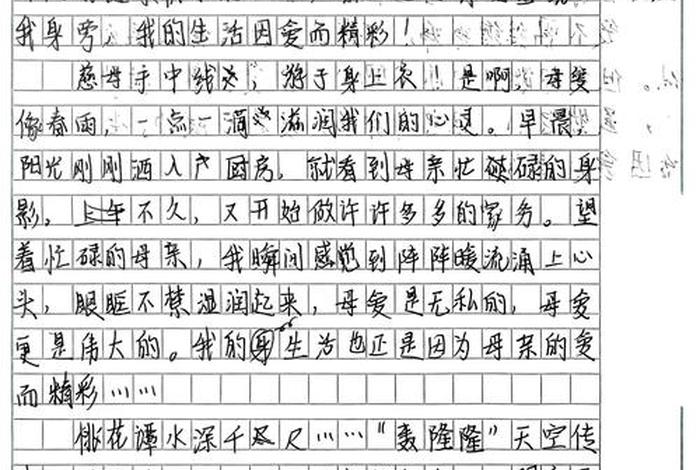 我身旁，我的生活因爱而精彩！
慈母手中线，游子身上衣！是啊，母爱
像春雨，一点一滴滋润我们的心灵。早晨，
阳光刚刚洒入厨房，就看到母亲忙碌的身
影，不久，又开始做许许多多的家务。望
着忙碌的母亲，我瞬间感觉到阵阵暖流涌上心
头，眼眶不禁湿润起来，母爱是无私的，母爱
更是伟大的。我的生活也正是因为母亲的爱
而精彩……
桃花谭水深千尺……“轰隆隆”天空传